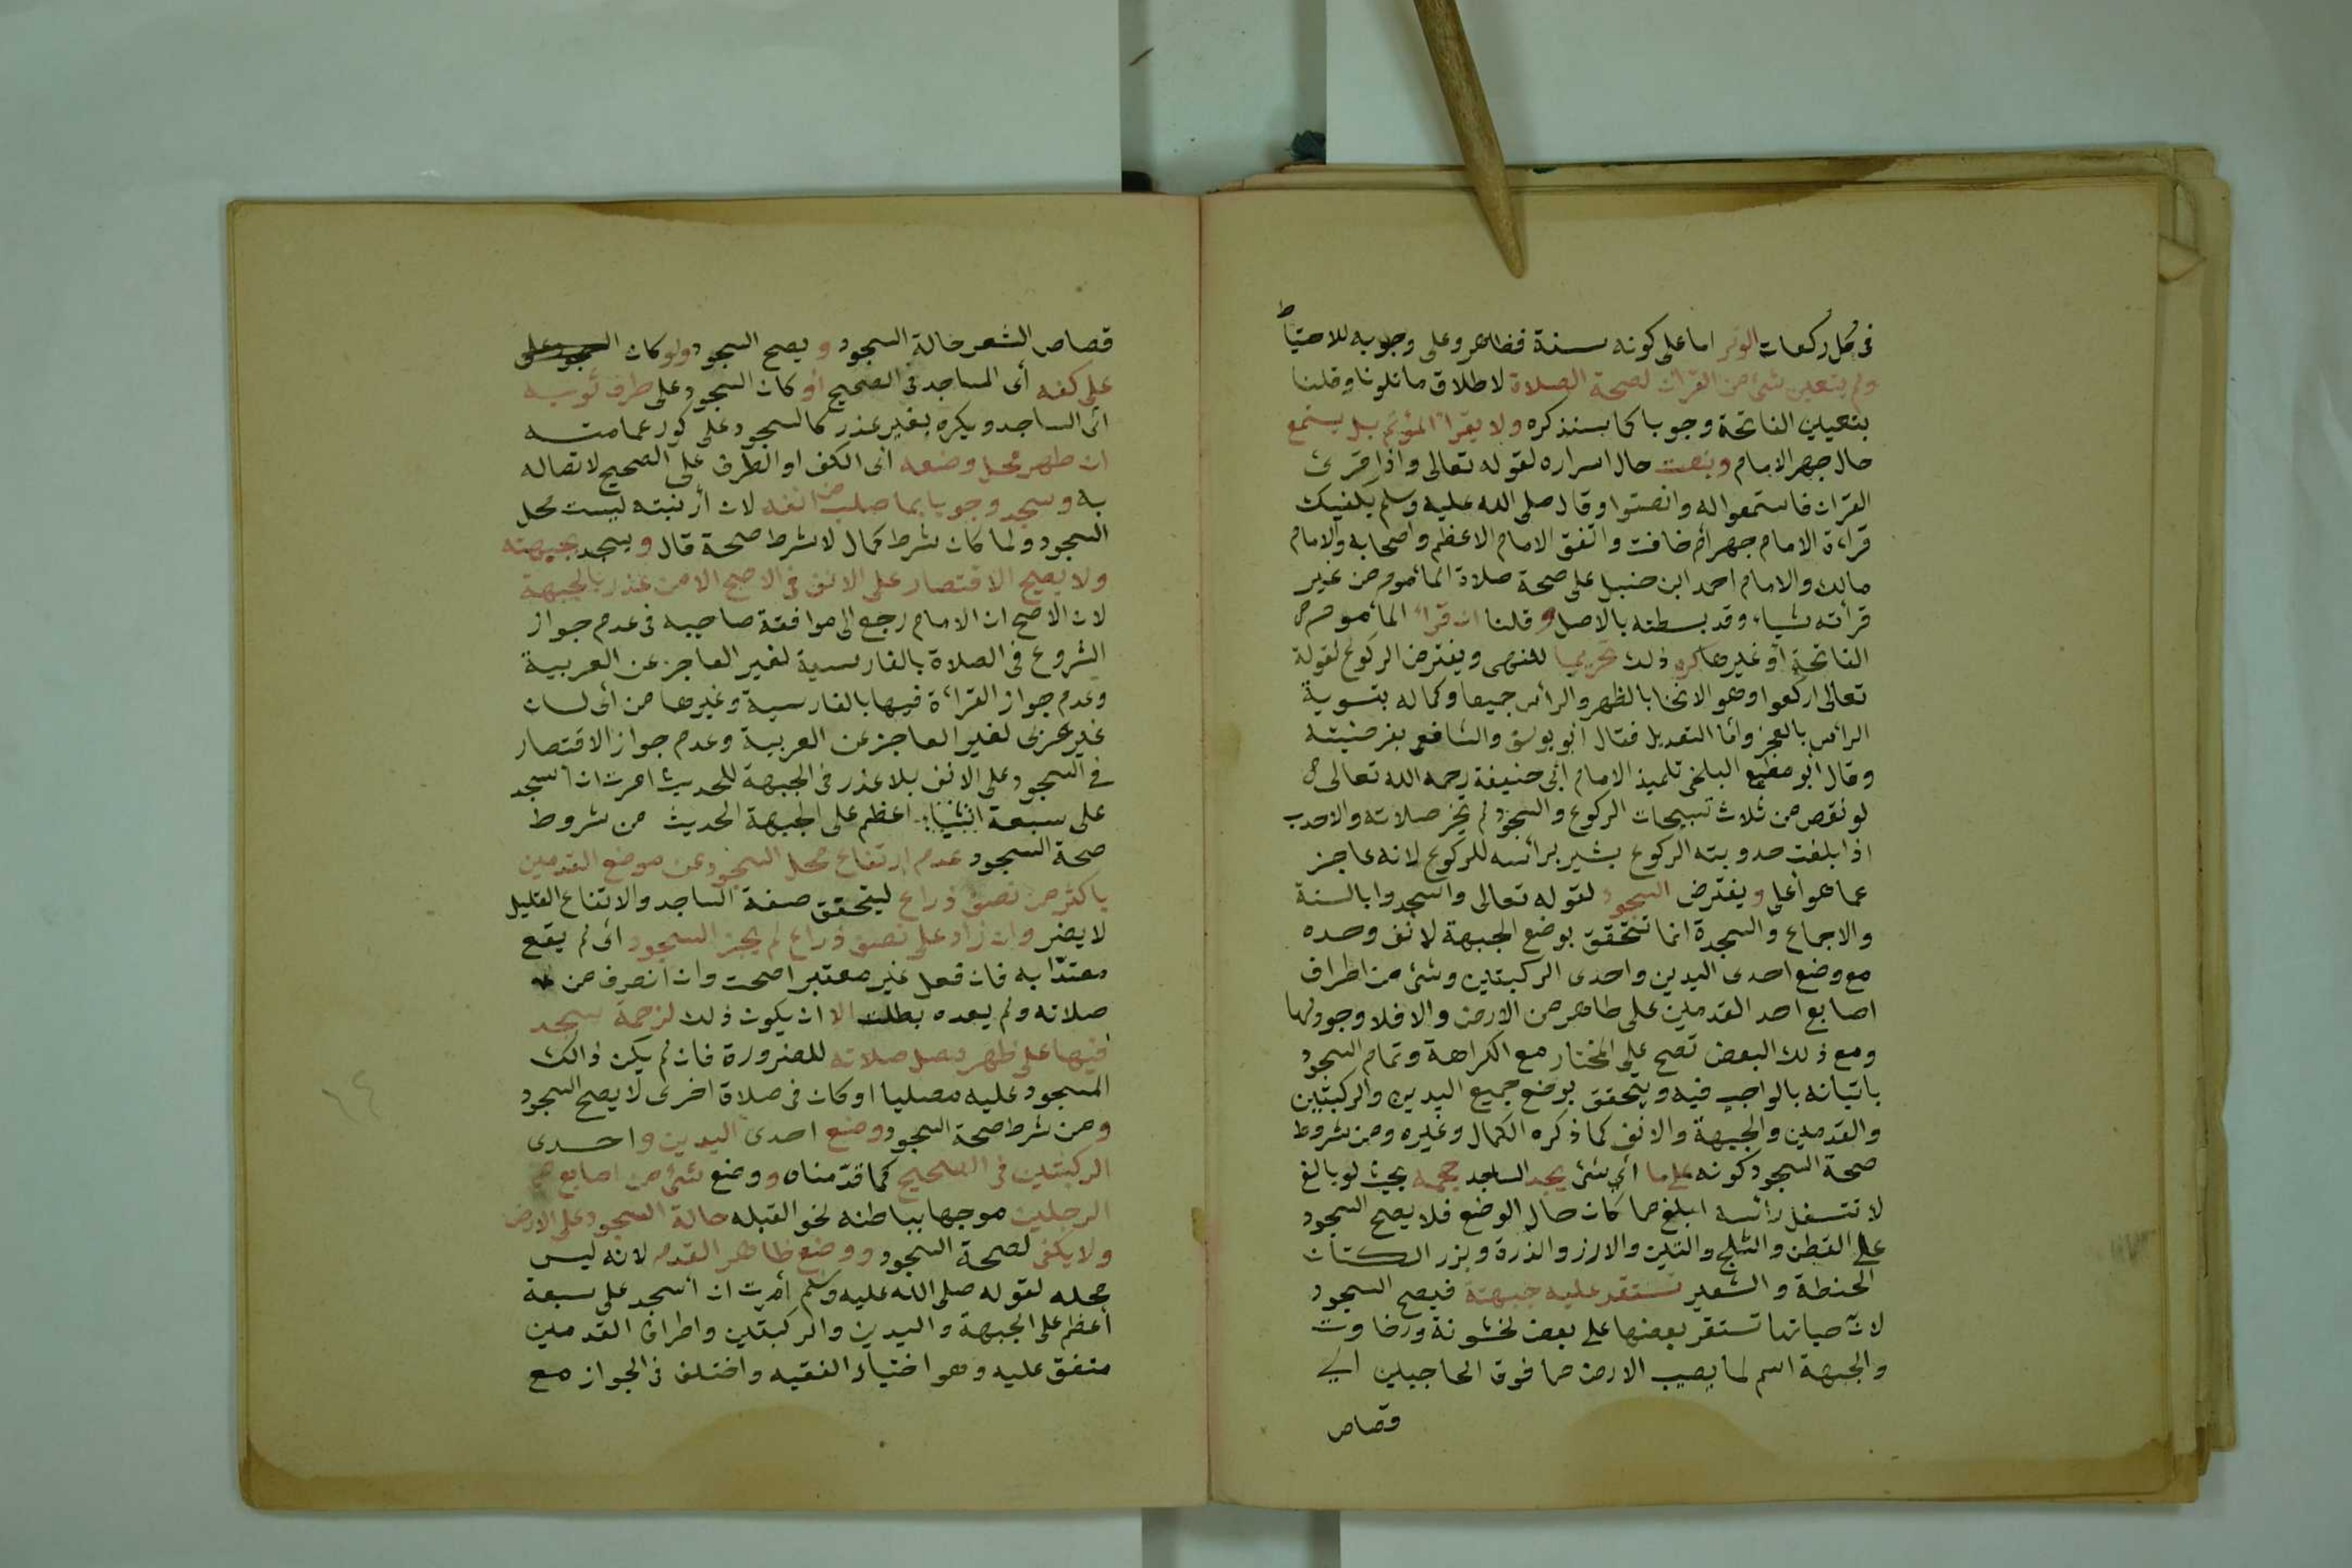 في كل ركعات الوتر اما على كونه سنة فظاهر وعلى وجوبه للاحتياط
ولم يتعين شئ من القران لصحة الصلاة لاطلاق ما تلونا وقلنا
بتعيين الفاتحة وجوبا كما سنذكره ولا يقرأ المؤتم بل يستمع
حال جهر الامام وينصت حال اسراره لقوله تعالى واذا قرئ
القران فاستمعوا له وانصتوا وقال صلى الله عليه وسلم يكفيك
قراءة الامام جهر أم خافت واتفق الامام الاعظم واصحابه والامام
مالك والامام احمد ابن حنبل على صحة صلاة المأموم من غير
قرأته شياء وقد بسطته بالاصل وقلنا ان قرأ المأموم
الفاتحة أو غيرها كره ذلك تحريميا للنهى ويفترض الركوع لقولة
تعالى اركعوا وهو الانحنا بالظهر والرأس جميعا وكماله بتسوية
الرأس بالعجز وأما التعديل فقال أبو يوسف والشافعي بفرضيته
وقال أبو مطيع البلخى تلميذ الامام أبى حنيفة رحمه الله تعالى
لو نقص من ثلاث تسبيحات الركوع والسجود لم تجز صلاته والاحدب
اذا بلغت حدوبته الركوع يشير برأسه للركوع لانه عاجز
عما هو أعلى ويفترض السجود لقوله تعالى واسجدوا بالسنة
والاجماع والسجدة انما تتحقق بوضع الجبهة لانف وحده
مع وضع احدى اليدين واحدى الركبتين وشئ من اطراف
اصابع احد القدمين على طاهر من الارض والافلا وجود لها
ومع ذلك البعض تصح على المختار مع الكراهة وتمام السجود
باتيانه بالواجب فيه ويتحقق بوضع جميع اليدين والركبتين
والقدمين والجبهة والانف كما ذكره الكمال وغيره ومن شروط
صحة السجود كونه على ما أي شئ يجد الساجد حجمه بحيث لو بالغ
لا تتسفل رأسه ابلغ مما كان حال الوضع فلا يصح السجود
على القطن والثلج والتبن والارز والذرة وبزر الكتان
الحنطة والشعير تستقر عليه جبهته فيصح السجود
لان حباتها تستقر بعضها على بعض لخشونة ورخاوت
والجبهة اسم لما يصيب الارض مما فوق الحاجبين الي
قصاص
قصاص الشعر حالة السجود ويصح السجود ولو كان السجود على
على كفه أى المساجد فى الصحيح أو كان السجود على طرف ثوبه
أى الساجد ويكره بغير عذر كالسجود على كور عمامته
ان طهر محل وضعه أى الكف او الطرف على الصحيح لاتصاله
به وسجد وجوبا بما صلب من انفه لان أرنبته ليست محل
السجود ولما كان شرط كمال لا شرط صحة قال ويسجد بجبهته
ولا يصح الاقتصار على الانف فى الاصح الا من عذر بالجبهة
لان الاصح ان الامام رجع الى موافقة صاحبه فى عدم جواز
الشروع فى الصلاة بالفارسية لغير العاجز عن العربية
وعدم جواز القراءة فيها بالفارسية وغيرها من أى لسان
غير عربى لغير العاجز عن العربية وعدم جواز الاقتصار
في السجود على الانف بلا عذر فى الجبهة للحديث امرت ان اسجد
على سبعة اعظم على الجبهة الحديث من شروط
صحة السجود عدم ارتفاع محل السجود عن موضع القدمين
باكثر من نصف ذراع ليتحقق صفة الساجد والارتفاع القليل
لا يضر وان زاد على نصف ذراع لم يجز السجود أى لم يقع
معتدا به فان فعل غير معتبر اصحت وان انصرف من
صلاته ولم يعده بطلت الا ان يكون ذلك لزحمة سجد
فيها على ظهر مصل صلاته للضرورة فان لم يكن ذالك
المسجود عليه مصليا او كان فى صلاة اخرى لا يصح السجود
ومن شرط صحة السجود وضع احدى اليدين واحدى
الركبتين فى الصحيح كما قدمناه ووضع شئ من اصابع
الرجلين موجها بباطنه نحو القبله حالة السجود على الارض
ولا يكفى لصحة السجود ووضع ظاهر القدم لانه ليس
محله لقوله صلى الله عليه وسلم أمرت ان أسجد على سبعة
أعظم على الجبهة واليدين والركبتين واطراف القدمين
متفق عليه وهو اختياء الفقيه واختلف فى الجواز مع
٦٤